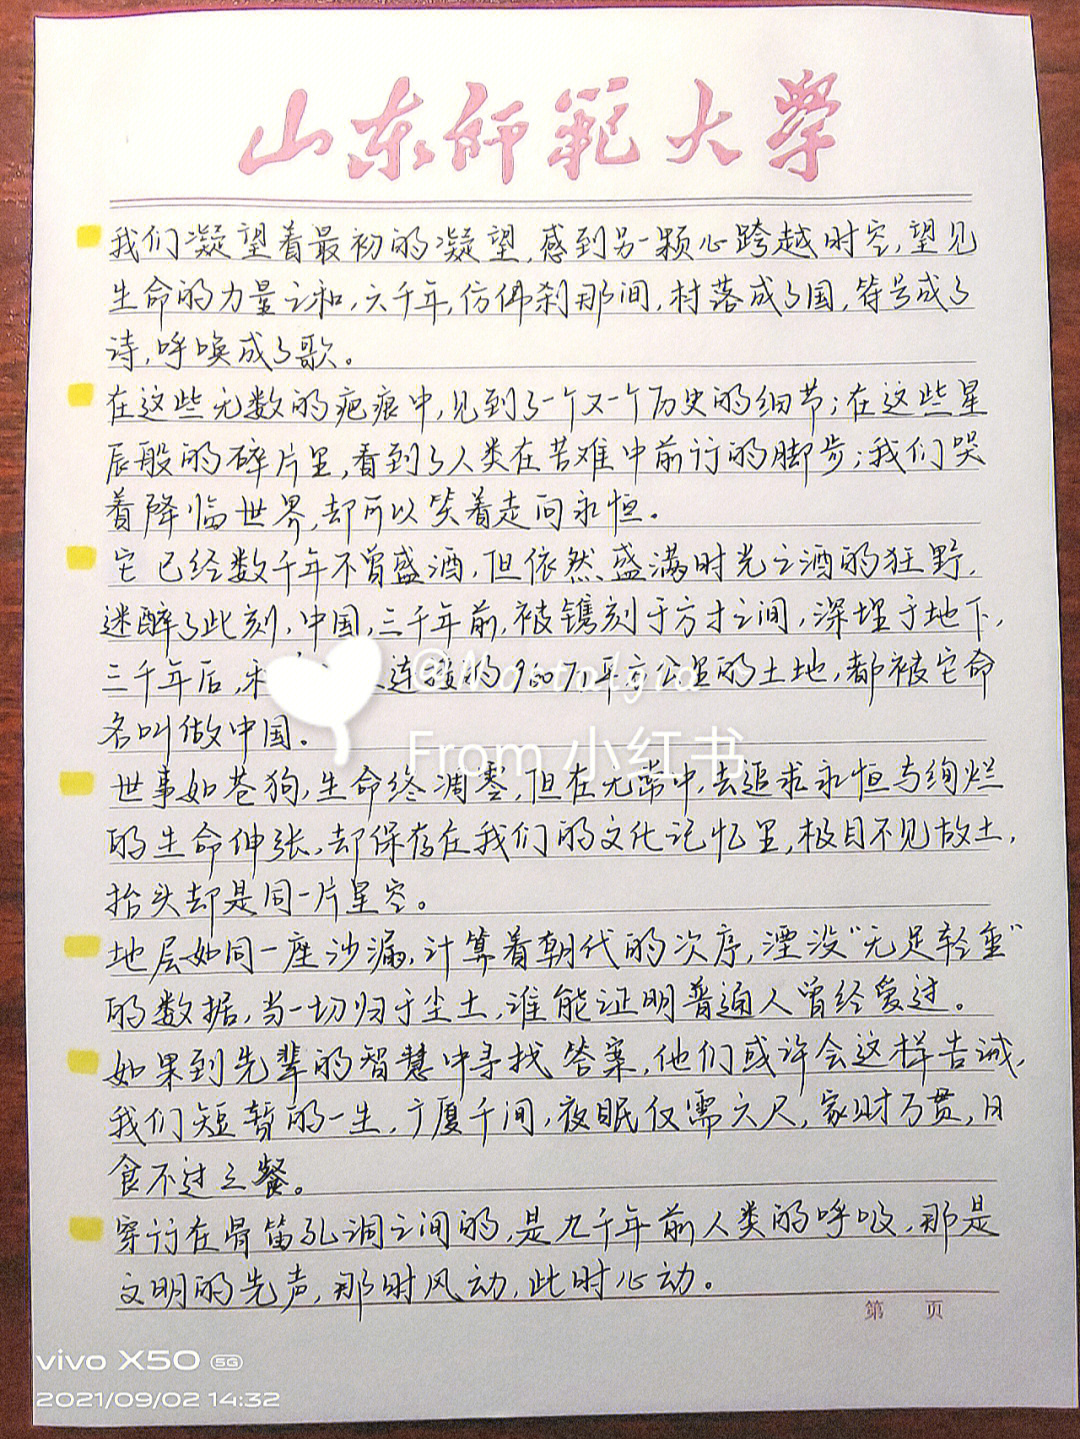 山东师范大学
我们凝望着最初的凝望,感到另一颗心跨越时空,望见
生命的力量之和,六千年,仿佛刹那间,村落成了国,符号成了
诗,呼唤成了歌。
在这些无数的疤痕中,见到了一个又一个历史的细节;在这些星
辰般的碎片里,看到了人类在苦难中前行的脚步;我们哭
着降临世界,却可以笑着走向永恒。
它已经数千年不曾盛酒,但依然盛满时光之酒的狂野,
迷醉了此刻,中国,三千年前,被镌刻于方寸之间,深埋于地下,
三千年后,连接的960万平方公里的土地,都被它命
名叫做中国。
世事如苍狗,生命终凋零,但在无常中,去追求永恒与绚烂
的生命伸张,却保存在我们的文化记忆里,极目不见故土,
抬头却是同一片星空。
地层如同一座沙漏,计算着朝代的次序,湮没“无足轻重”
的数据,当一切归于尘土,谁能证明普通人曾经爱过。
如果到先辈的智慧中寻找答案,他们或许会这样告诫,
我们短暂的一生,广厦千间,夜眠仅需六尺,家财万贯,日
食不过三餐。
穿行在骨笛孔洞之间的,是九千年前人类的呼吸,那是
文明的先声,那时风动,此时心动。
第 页
@Nostalgia
From 小红书
vivo X50 5G
2021/09/02 14:32